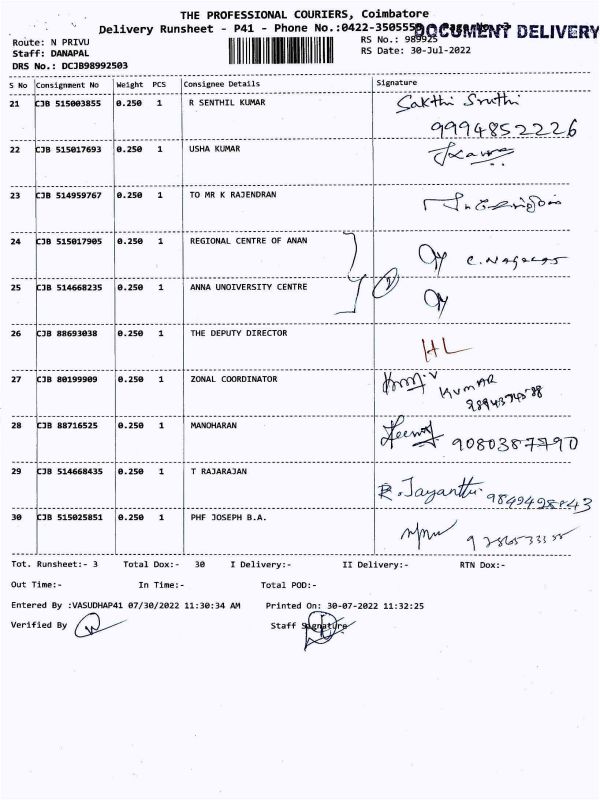 THE PROFESSIONAL COURIERS, Coimbatore
Delivery Runsheet - P41 - Phone No.:0422-3505550 Page No. 3
DOCUMENT DELIVERY
Route: N PRIVU
RS No.: 989925
Staff: DANAPAL
RS Date: 30-Jul-2022
DRS No.: DCJB98992503
S No Consignment No Weight PCS Consignee Details Signature
21 CJB 515003855 0.250 1 R SENTHIL KUMAR Sakthi Sruthi
9994852226
22 CJB 515017693 0.250 1 USHA KUMAR
23 CJB 514959767 0.250 1 TO MR K RAJENDRAN
24 CJB 515017905 0.250 1 REGIONAL CENTRE OF ANAN C. Nagaraj
25 CJB 514668235 0.250 1 ANNA UNOIVERSITY CENTRE
26 CJB 88693038 0.250 1 THE DEPUTY DIRECTOR HL
27 CJB 80199909 0.250 1 ZONAL COORDINATOR KUMAR
28 CJB 88716525 0.250 1 MANOHARAN 9080387790
29 CJB 514668435 0.250 1 T RAJARAJAN R. Jayanthi
30 CJB 515025851 0.250 1 PHF JOSEPH B.A.
Tot. Runsheet:- 3 Total Dox:- 30 I Delivery:- II Delivery:- RTN Dox:-
Out Time:- In Time:- Total POD:-
Entered By :VASUDHAP41 07/30/2022 11:30:34 AM Printed On: 30-07-2022 11:32:25
Verified By Staff Signature